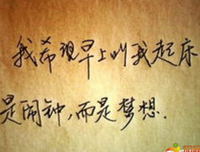 我希望早上叫我起床
是闹钟,而是梦想.